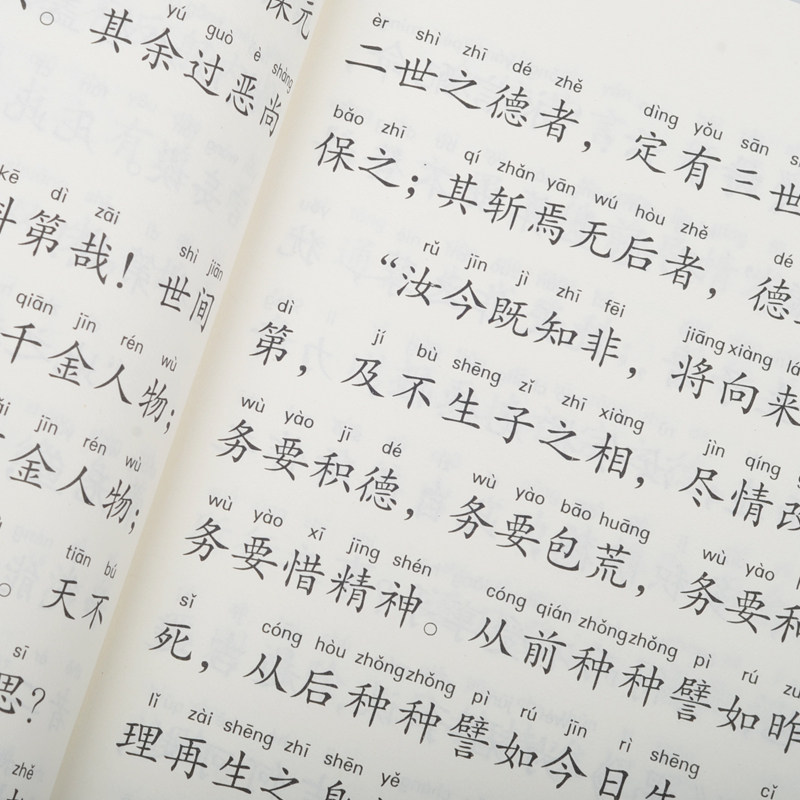 yú guò è shàng
其余过恶尚
kē dì zāi shì jiān
第哉！世间
qiān jīn rén wù
千金人物；
jīn rén wù
金人物；
tiān bú
。天不
sī
思？
zhě
èr shì zhī dé zhě dìng yǒu sān
二世之德者，定有三世
bǎo zhī qí zhǎn yān wú hòu zhě dé
保之；其斩焉无后者，德
rǔ jīn jì zhī fēi jiāng xiàng
“汝今既知非，将向来
dì jí bù shēng zǐ zhī xiàng jìn qíng
第，及不生子之相，尽情改
wù yào jī dé wù yào bāo huāng wù yào
务要积德，务要包荒，务要和
wù yào xī jīng shén cóng qián zhǒng zhǒng pì rú
务要惜精神。从前种种譬如昨
sǐ cóng hòu zhǒng zhǒng pì rú jīn rì shēng
死，从后种种譬如今日生
lǐ zài shēng zhī shēn yě cǐ
理再生之身